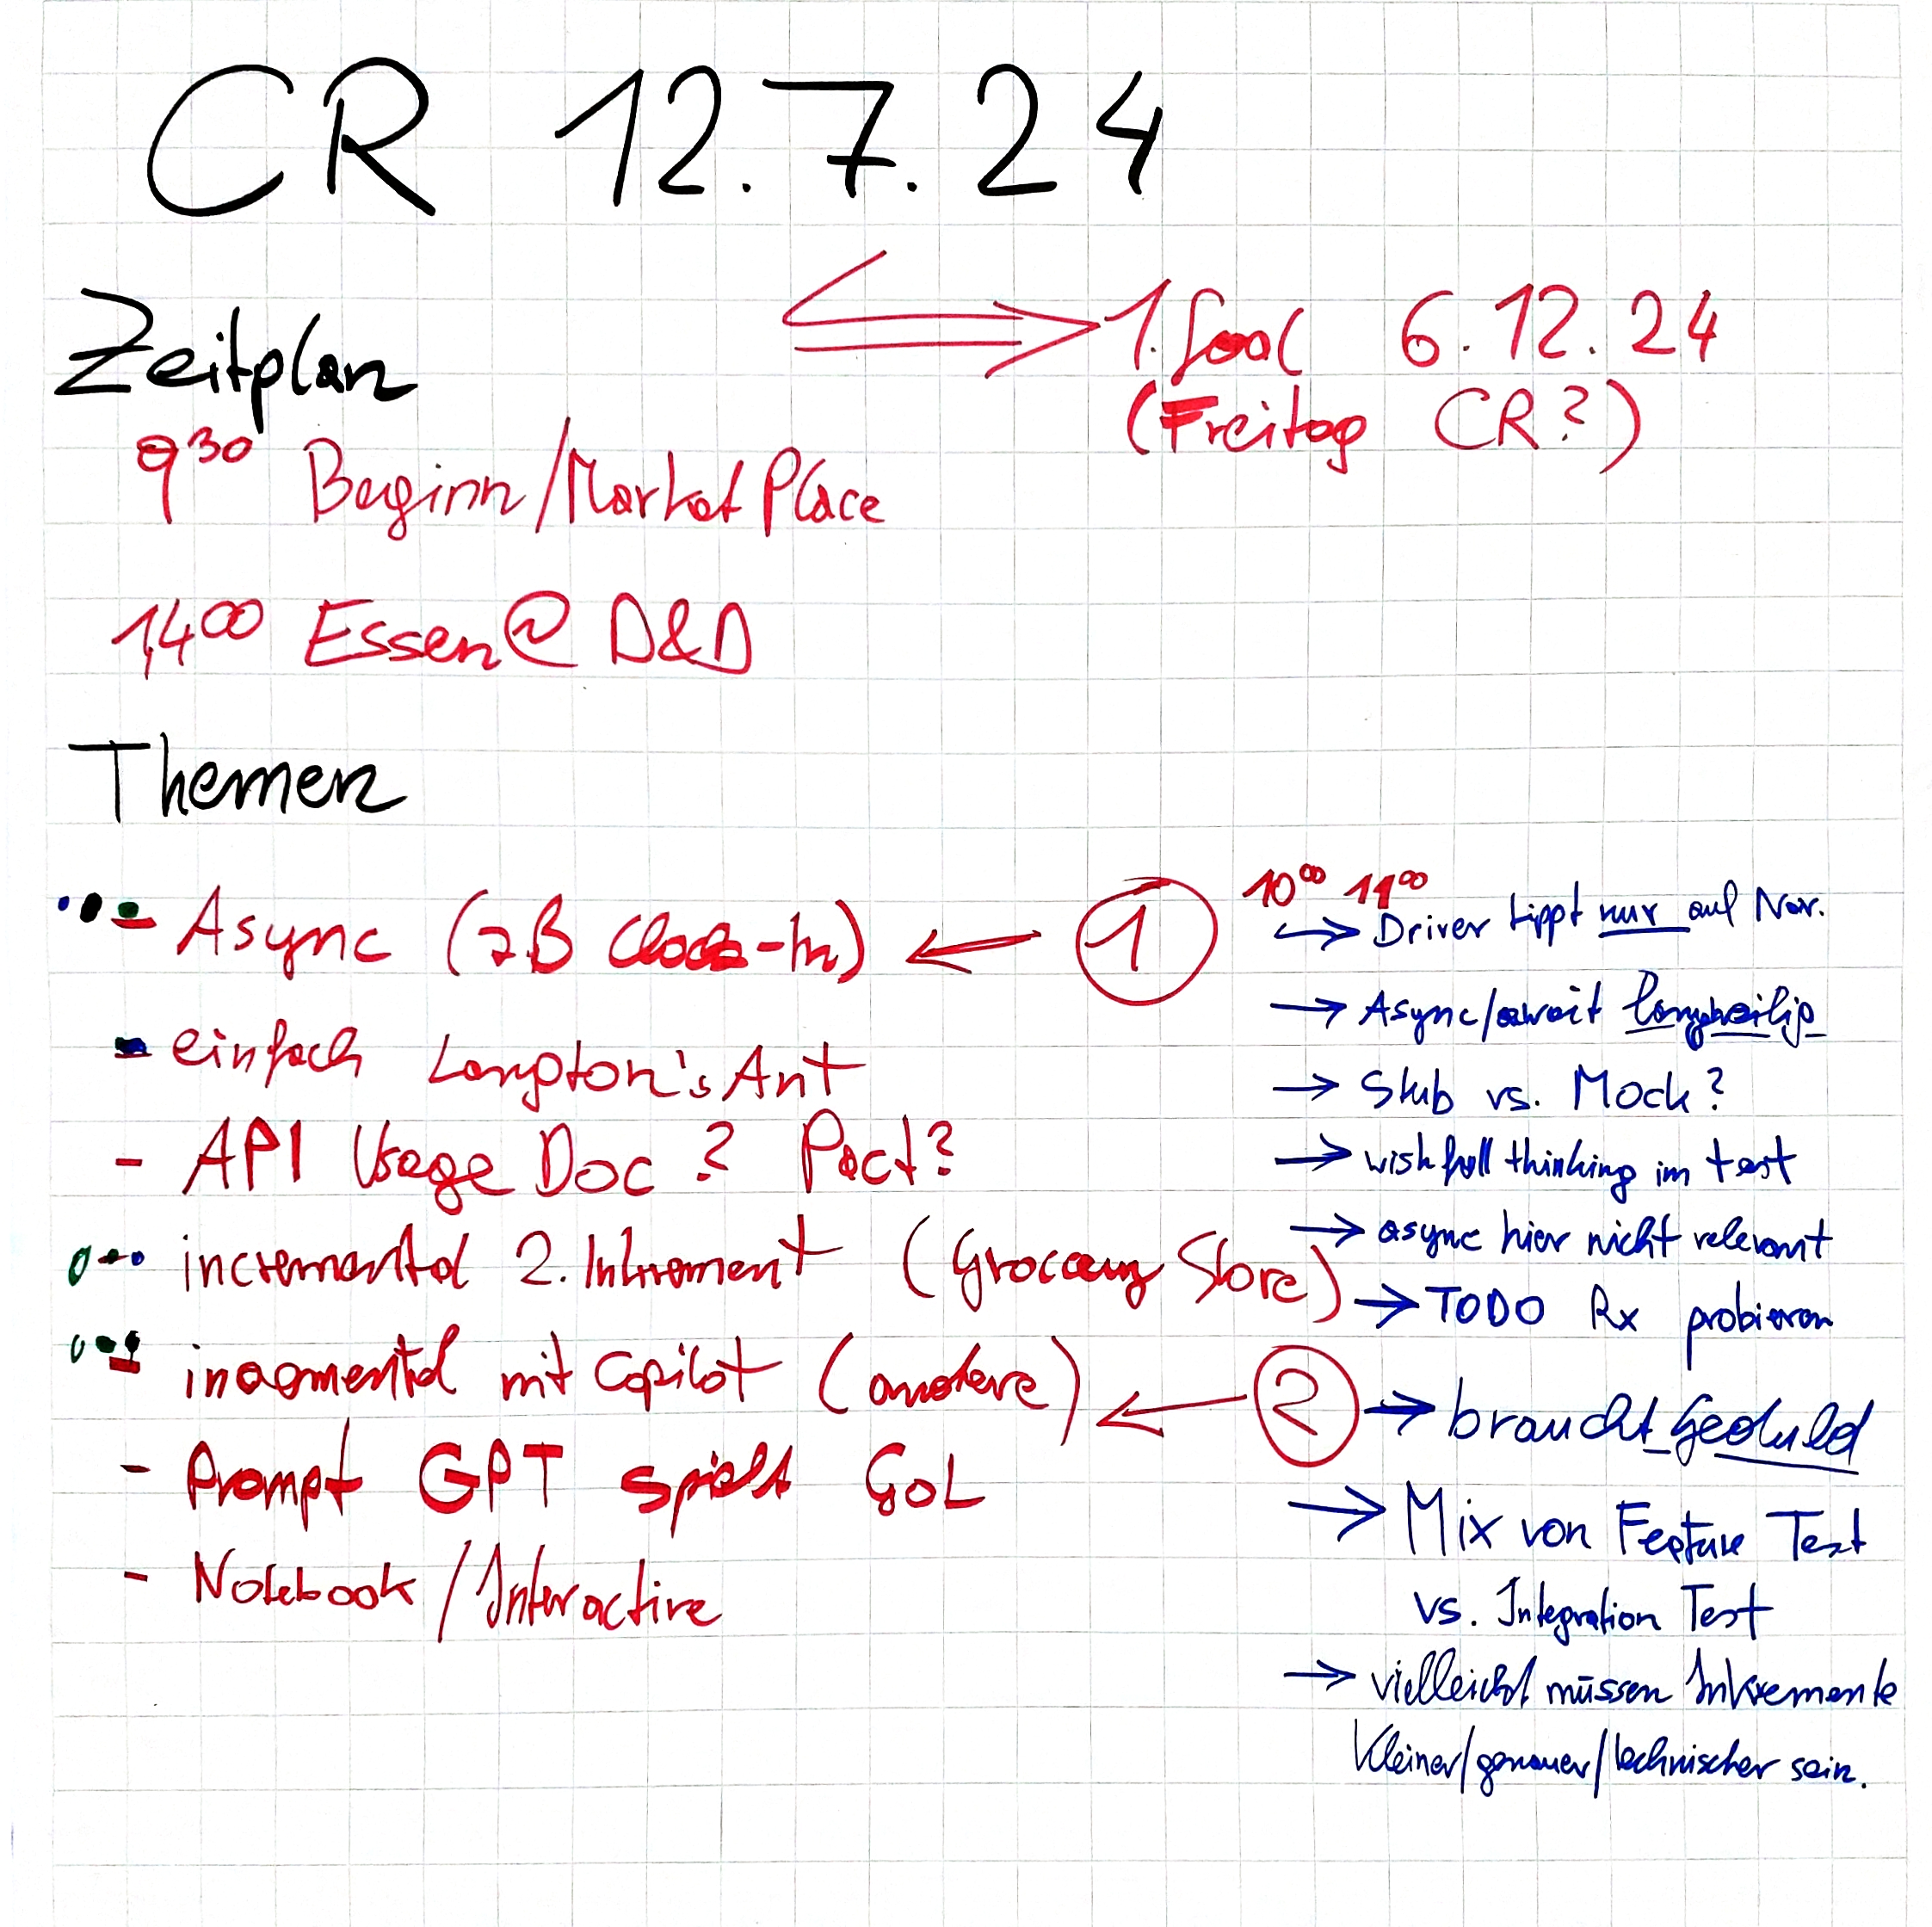 CR 12.7.24
Zeitplan
1. 6.12.24
(Freitag CR?)
9³⁰ Beginn/Market Place
14⁰⁰ Essen @ D&D
Themen
- Async (zB Clock-In) ← 1
- einfach Langton's Ant
- API Usage Doc? Pact?
- incremental 2. Inkrement (Grocery Store)
- incremental mit Copilot (andere) ← 2
- Prompt GPT spielt GoL
- Notebook/Interactive
10⁰⁰ 11⁰⁰
→ Driver tippt nur auf Nav.
→ Async/await langweilig
→ Stub vs. Mock?
→ wishfull thinking im test
→ async hier nicht relevant
→ TODO Rx probieren
→ braucht Geduld
→ Mix von Feature Test
vs. Integration Test
→ vielleicht müssen Inkremente
kleiner/genauer/technischer sein.